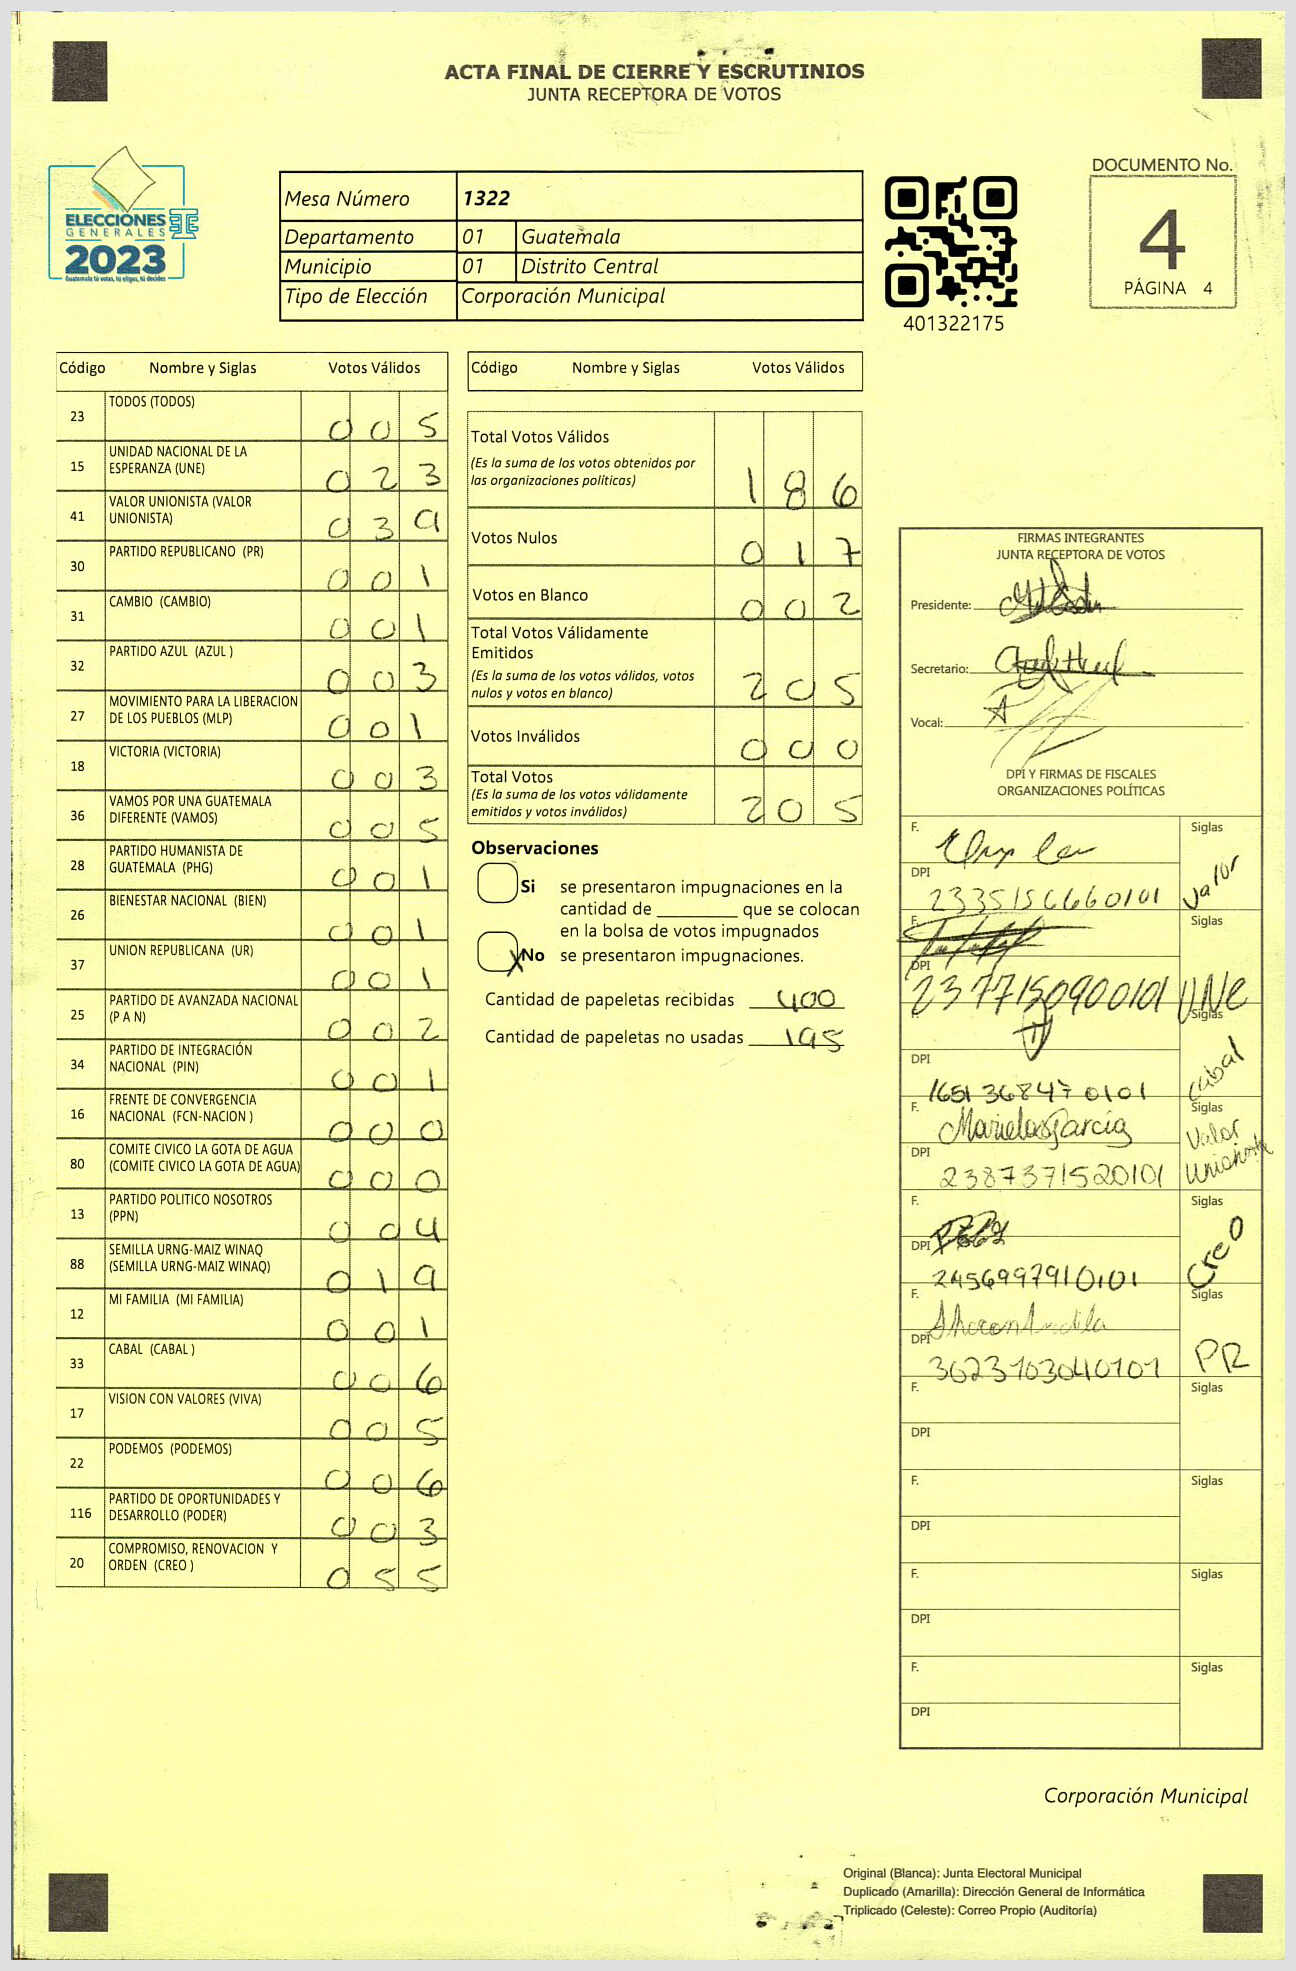 ACTA FINAL DE CIERRE Y ESCRUTINIOS
JUNTA RECEPTORA DE VOTOS
ELECCIONES
GENERALES
2023
Guatemala tú votas, tú eliges, tú decides
Mesa Número 1322
Departamento 01 Guatemala
Municipio 01 Distrito Central
Tipo de Elección Corporación Municipal
401322175
DOCUMENTO No.
4
PÁGINA 4
Código Nombre y Siglas Votos Válidos
23 TODOS (TODOS) 0 0 5
15 UNIDAD NACIONAL DE LA
ESPERANZA (UNE) 0 2 3
41 VALOR UNIONISTA (VALOR
UNIONISTA) 0 3 9
30 PARTIDO REPUBLICANO (PR) 0 0 1
31 CAMBIO (CAMBIO) 0 0 1
32 PARTIDO AZUL (AZUL ) 0 0 3
27 MOVIMIENTO PARA LA LIBERACION
DE LOS PUEBLOS (MLP) 0 0 1
18 VICTORIA (VICTORIA) 0 0 3
36 VAMOS POR UNA GUATEMALA
DIFERENTE (VAMOS) 0 0 5
28 PARTIDO HUMANISTA DE
GUATEMALA (PHG) 0 0 1
26 BIENESTAR NACIONAL (BIEN) 0 0 1
37 UNION REPUBLICANA (UR) 0 0 1
25 PARTIDO DE AVANZADA NACIONAL
(P A N) 0 0 2
34 PARTIDO DE INTEGRACIÓN
NACIONAL (PIN) 0 0 1
16 FRENTE DE CONVERGENCIA
NACIONAL (FCN-NACION ) 0 0 0
80 COMITE CIVICO LA GOTA DE AGUA
(COMITE CIVICO LA GOTA DE AGUA) 0 0 0
13 PARTIDO POLITICO NOSOTROS
(PPN) 0 0 4
88 SEMILLA URNG-MAIZ WINAQ
(SEMILLA URNG-MAIZ WINAQ) 0 1 9
12 MI FAMILIA (MI FAMILIA) 0 0 1
33 CABAL (CABAL ) 0 0 6
17 VISION CON VALORES (VIVA) 0 0 5
22 PODEMOS (PODEMOS) 0 0 6
116 PARTIDO DE OPORTUNIDADES Y
DESARROLLO (PODER) 0 0 3
20 COMPROMISO, RENOVACION Y
ORDEN (CREO ) 0 5 5
Código Nombre y Siglas Votos Válidos
Total Votos Válidos
(Es la suma de los votos obtenidos por
las organizaciones políticas) 1 8 6
Votos Nulos 0 1 7
Votos en Blanco 0 0 2
Total Votos Válidamente
Emitidos
(Es la suma de los votos válidos, votos
nulos y votos en blanco) 2 0 5
Votos Inválidos 0 0 0
Total Votos
(Es la suma de los votos válidamente
emitidos y votos inválidos) 2 0 5
Observaciones
Si se presentaron impugnaciones en la
cantidad de ________ que se colocan
en la bolsa de votos impugnados
X No se presentaron impugnaciones.
Cantidad de papeletas recibidas 400
Cantidad de papeletas no usadas 195
FIRMAS INTEGRANTES
JUNTA RECEPTORA DE VOTOS
Presidente:
Secretario:
Vocal:
DPI Y FIRMAS DE FISCALES
ORGANIZACIONES POLÍTICAS
F. Siglas
DPI Valor
2335156660101
F. Siglas
DPI
2377150900101 UNE
F. Siglas
DPI Cabal
1651368470101
F. Marielos García Siglas
DPI Valor
2387371520101 Unionista
F. Siglas
DPI Creo
2456997910101
F. Siglas
DPI PR
3023103040101
F. Siglas
DPI
F. Siglas
DPI
F. Siglas
DPI
F. Siglas
DPI
Corporación Municipal
Original (Blanca): Junta Electoral Municipal
Duplicado (Amarilla): Dirección General de Informática
Triplicado (Celeste): Correo Propio (Auditoría)